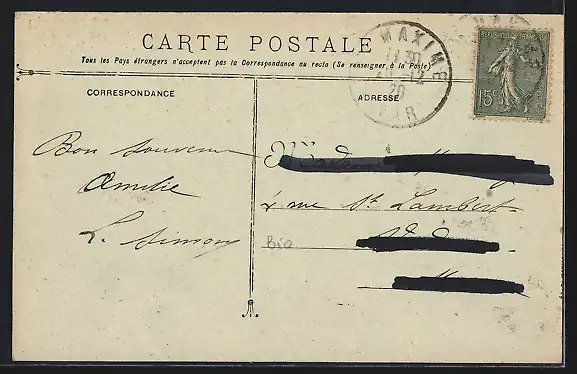 CARTE POSTALE
Tous les Pays étrangers n'acceptent pas la Correspondance au recto (Se renseigner à la Poste)
CORRESPONDANCE
ADRESSE
MAXIME
12
20
VAR
REPUBLIQUE FRANÇAISE
15c
Bon souvenir
Amélie
L. Simon
rue St Lambert